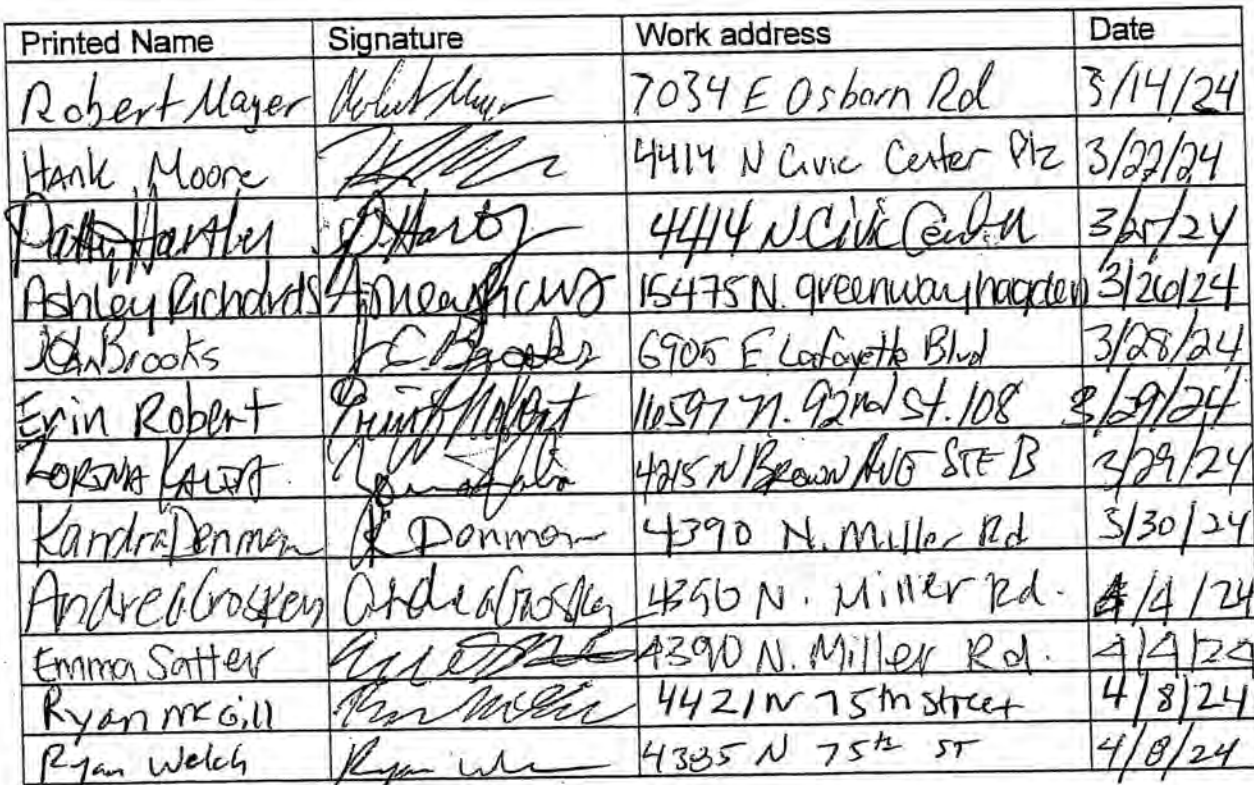 Printed Name Signature Work address Date
Robert Mayer Robert Mayer 7034 E Osborn Rd 3/14/24
Hank Moore 4414 N Civic Center Plz 3/22/24
Patty Hartley P Hartley 4414 N Civic Center 3/25/24
Ashley Richards 15475 N. greenway hayden 3/26/24
John Brooks J C Brooks 6905 E Lafayette Blvd 3/28/24
Erin Robert 16597 N. 92nd St. 108 3/29/24
4215 N Brown AVE STE B 3/29/24
Kandra Denman K Denman 4390 N. Miller Rd 3/30/24
Andrea Croskey Andrea Croskey 4390 N. Miller Rd. 4/4/24
Emma Satter 4390 N. Miller Rd. 4/4/24
Ryan McGill 4421 N 75th street 4/8/24
Ryan Welch Ryan 4385 N 75th ST 4/8/24